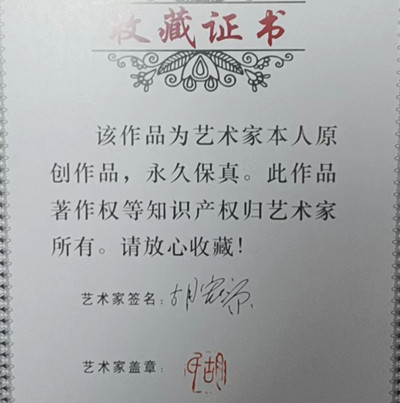 收藏证书
该作品为艺术家本人原
创作品，永久保真。此作品
著作权等知识产权归艺术家
所有。请放心收藏！
艺术家签名：胡
艺术家盖章：
胡